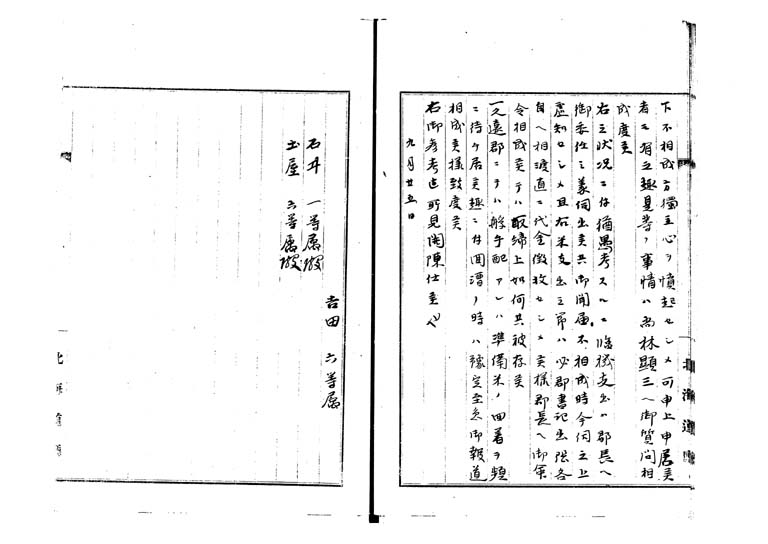 下不相成方獨立心ヲ憤起セシメ可申上申居候
者ニ有之趣是等ノ事情ハ尚林顯三ヘ御質問相
成度候
右之状况ニ付猶愚考スルニ臨機支出ハ郡長ヘ
御委任之義伺出候共御聞届不相成時今伺之上
虚知セシメ且右米支出之節ハ必郡書記出張各
自ヘ相渡直ニ代金徴收セシメ候様郡長ヘ御
令相成候テハ取締上如何共被存候
一久遠郡ニテハ船手配アレハ準備米ノ回着ヲ
ニ待チ居候趣ニ付回漕ノ時ハ豫定至急御報道
相成候様致度候
右御参考迄所見聞陳仕候也
九月廿五日
吉田六等属
石井一等属殿
土屋六等属殿
北海道